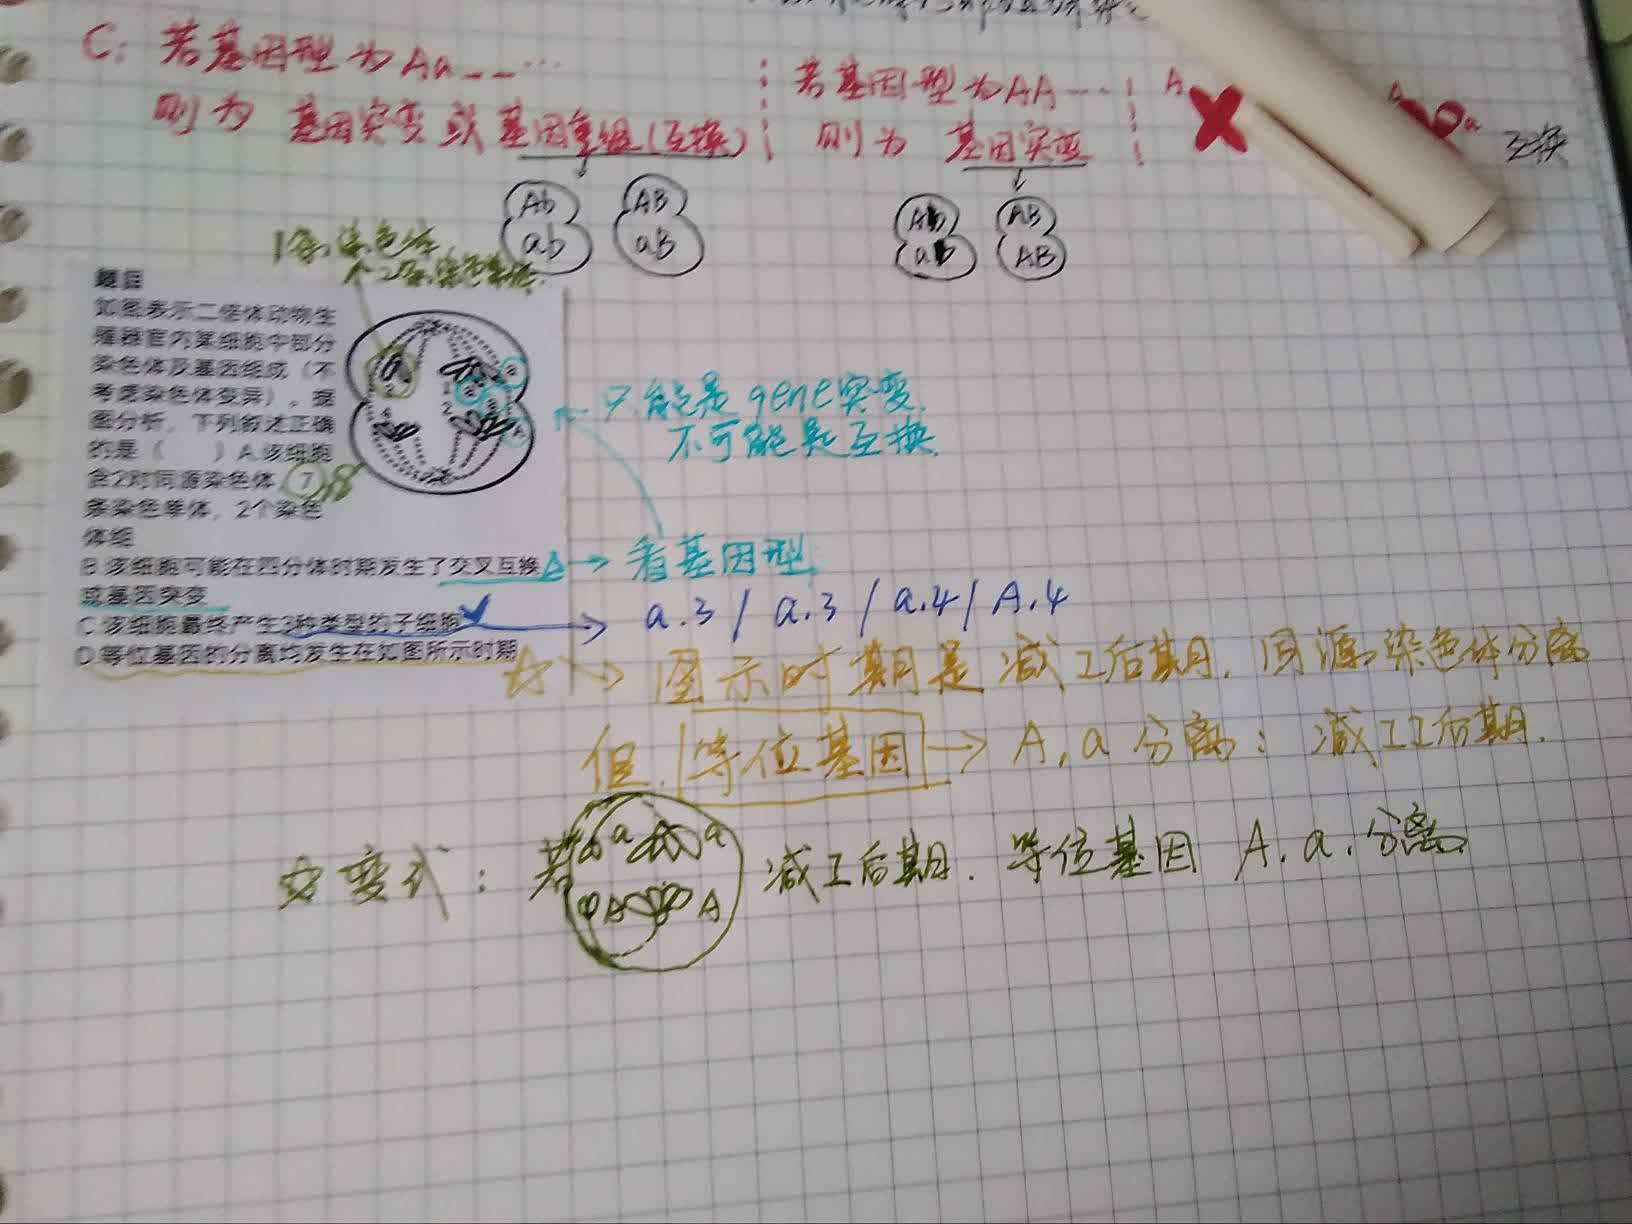 C: 若基因型为Aa_ _ …
则为 基因突变或基因重组(互换)
若基因型为AA …
则为 基因突变
A
A
a
互换
Ab
ab
AB
aB
Ab
ab
AB
AB
1条染色体
题目
如图表示二倍体动物生
殖器官内某细胞中部分
染色体及基因组成（不
考虑染色体变异），据
图分析，下列叙述正确
的是（ ）A 该细胞
含2对同源染色体，7
条染色单体，2个染色
体组
B 该细胞可能在四分体时期发生了交叉互换
或基因突变
C 该细胞最终产生3种类型的子细胞
D 等位基因的分离均发生在如图所示时期
1
2
3
4
8
只能是gene突变.
不可能是互换.
→ 看基因型.
→ a.3 / a.3 / a.4 / A.4
☆ → 图示时期是减I后期. 同源染色体分离
但. 等位基因 → A, a 分离: 减II后期.
变式: 若
a a
A A
减I后期. 等位基因 A. a. 分离